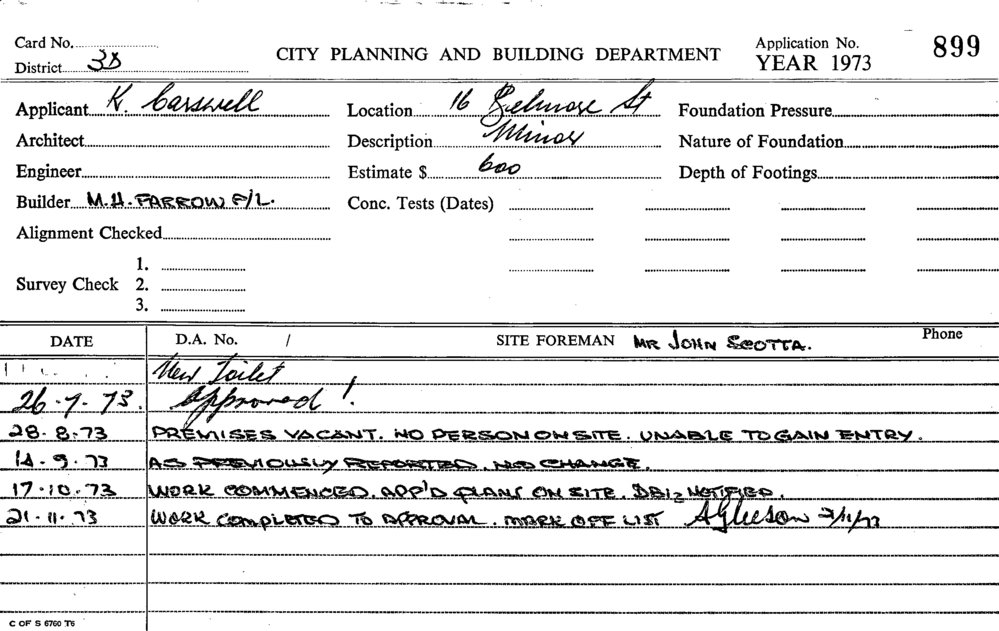 Card No. Application No. 899
District 3B CITY PLANNING AND BUILDING DEPARTMENT YEAR 1973
Applicant K. Carswell Location 16 Belmore St Foundation Pressure
Architect Description Minor Nature of Foundation
Engineer Estimate $ 600 Depth of Footings
Builder M.H. FARROW P/L. Conc. Tests (Dates)
Alignment Checked
1.
Survey Check 2.
3.
DATE D.A. No. / SITE FOREMAN MR JOHN SCOTTA. Phone
New Toilet
26.7.73. Approved!
28.8.73 PREMISES VACANT. NO PERSON ON SITE. UNABLE TO GAIN ENTRY.
14.9.73 AS PREVIOUSLY REPORTED. NO CHANGE.
17.10.73 WORK COMMENCED. APP'D PLANS ON SITE. NOTIFIED.
21.11.73 WORK COMPLETED TO APPROVAL. MARK OFF LIST AGleeson
C OF S 6760 T6